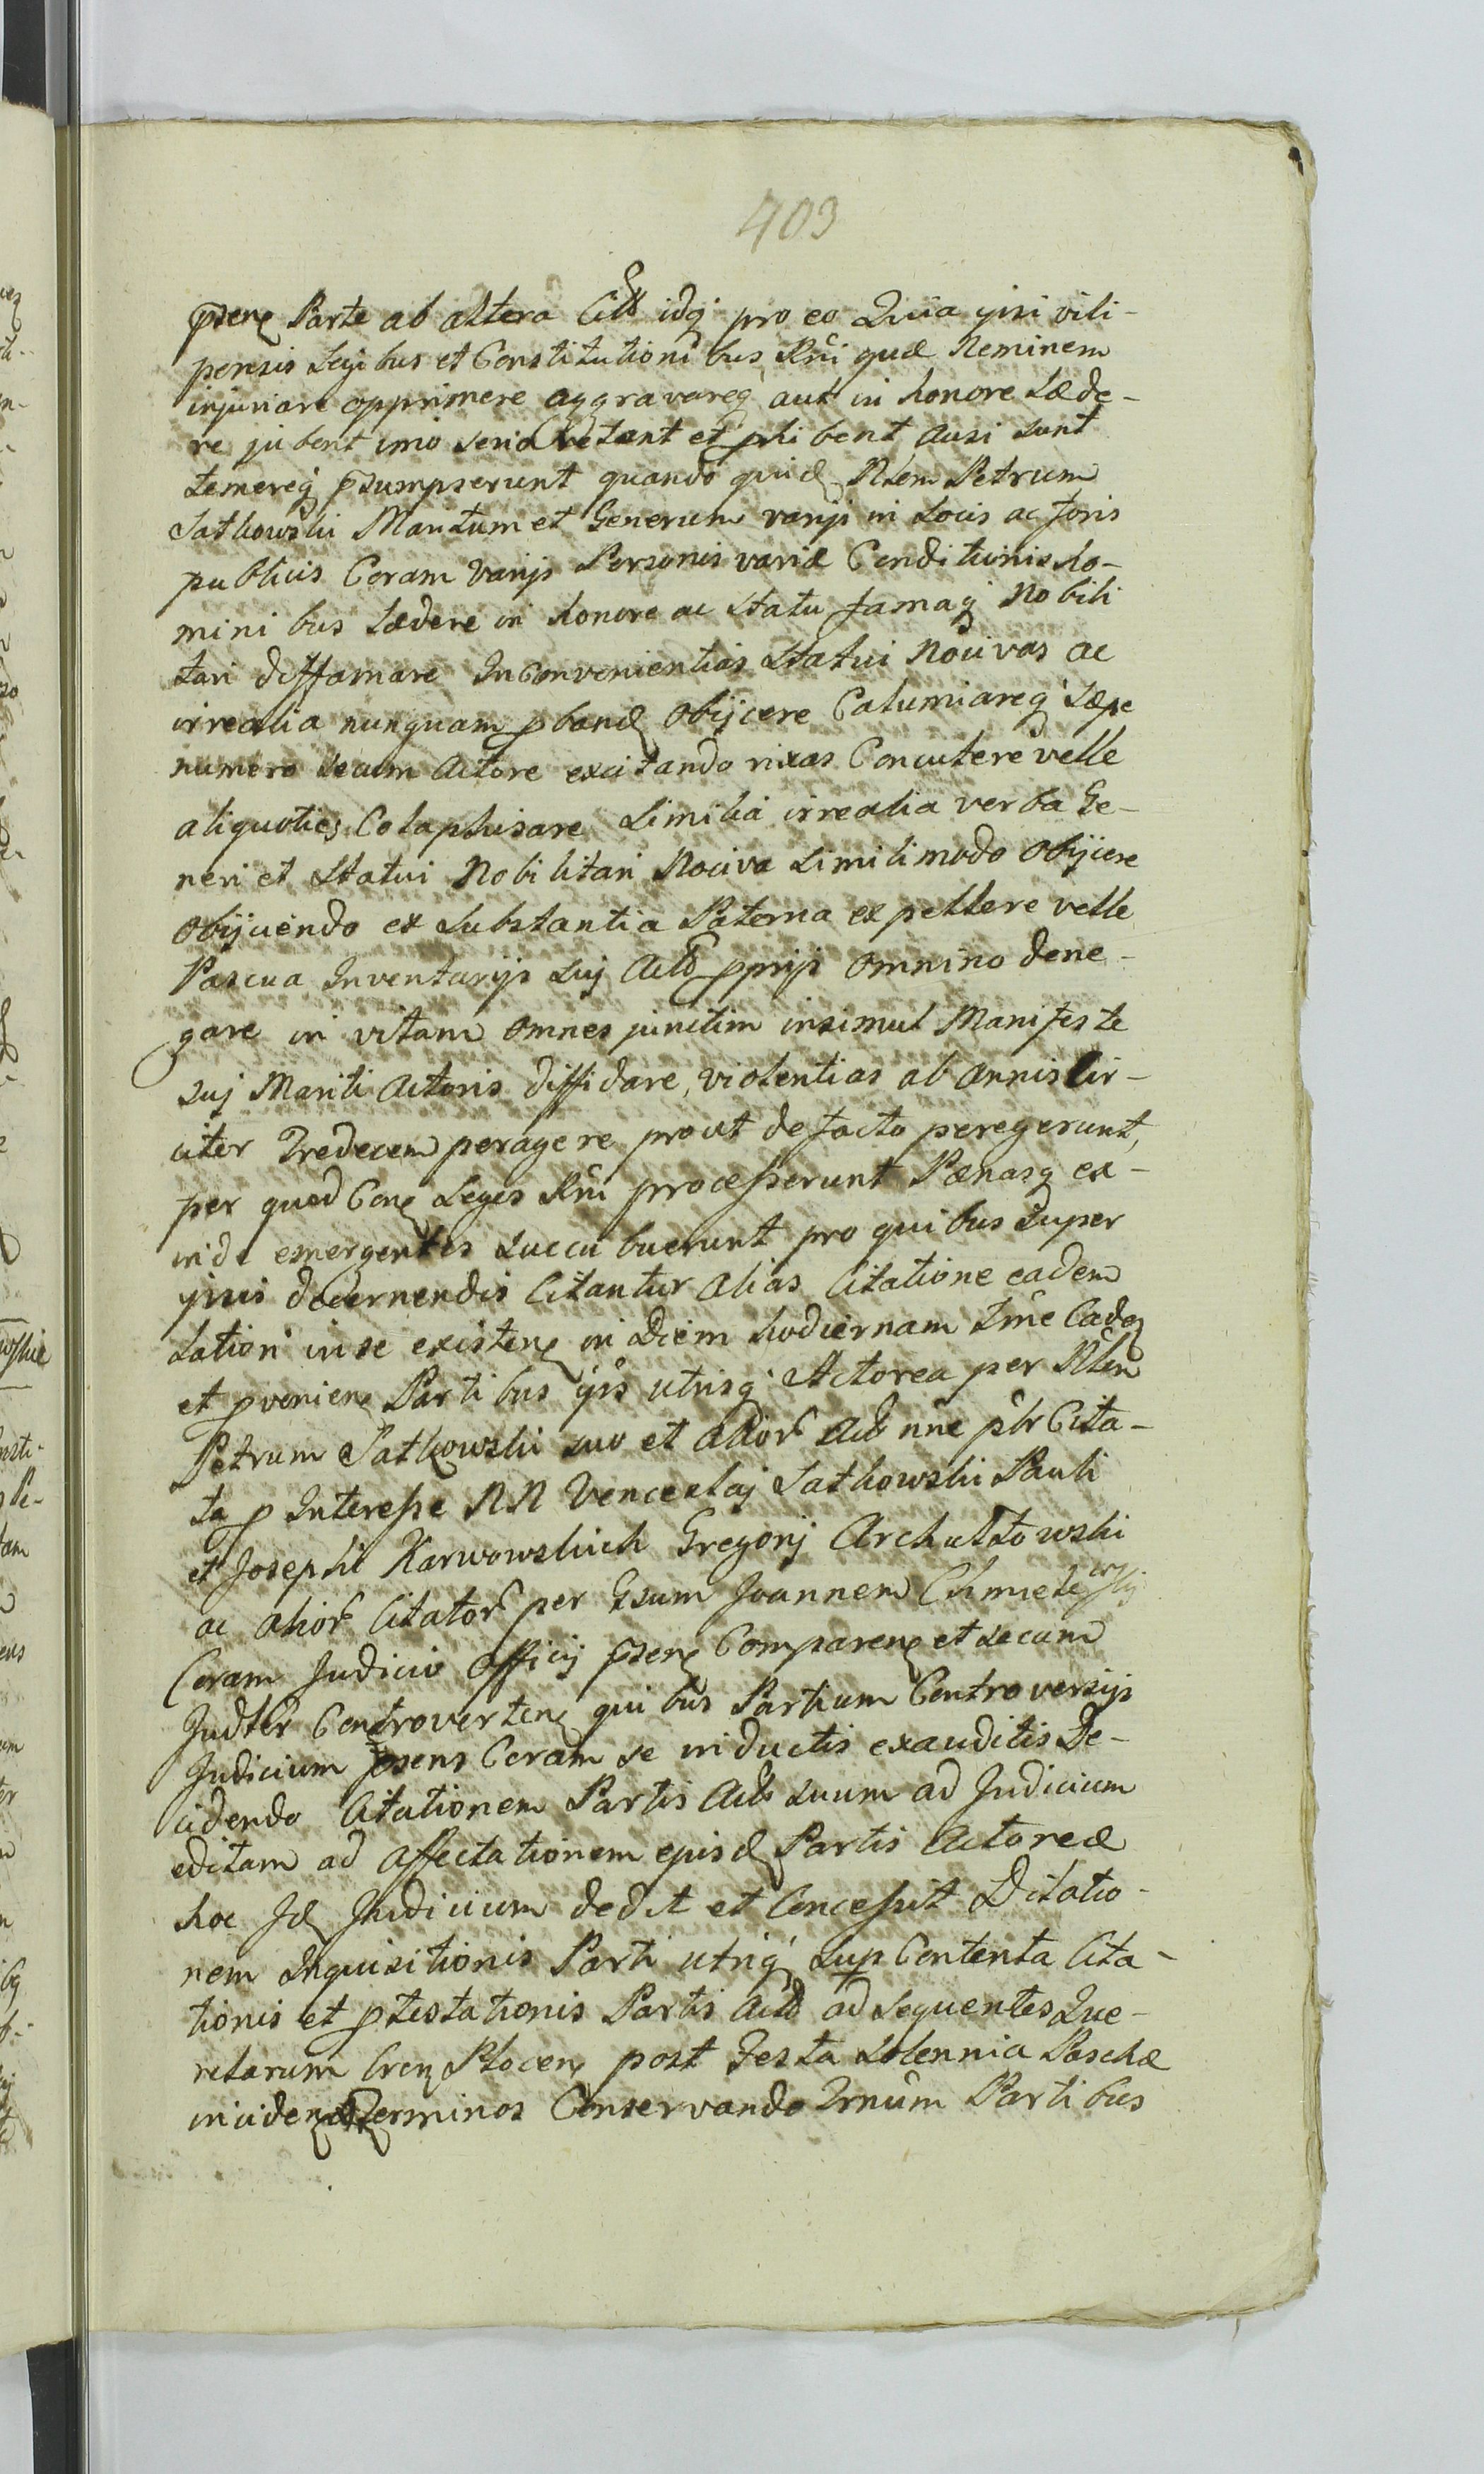 403
psen Parte ab altera Citt idq pro eo Quia ipsi vili-
pensis Legibus et Constitutionibus Rni quæ Neminem
injuriare opprimere aggravareq aut in honore Læde-
re jubent imo serio vetant et phibent ausi sunt
temereq psumpserunt quando quid Nlem Petrum
Sathowski Maritum et Generum varijs in Locis ac foris
publicis Coram varijs Personis variæ Conditionis ho-
minibus Lædere in honore ac Statu famaq Nobili
tari diffamare Inconvenientias Statui Nocivas ac
irrealia nunquam pband Obijcere Calumiareq Sæpe
numero secum Actore excitando rixas Concutere velle
aliquoties Colaphisare Similia irrealia verba Ge-
neri et Statui Nobilitari Nociva Simili modo Obijcere
Obijciendo ex Substantia Paterna expellere velle
Pascua Inventarijs Suj Actt pprijs omnino dene-
gare in vitam omnes junctim insimul Manifeste
suj Mariti Actoris diffidare, violentias ab annis Cir-
citer Tredecem peragere prout de facto peregerunt,
per quod Con Leges Rni processerunt Pænasq ex-
inde emergentes succubuerunt pro quibus super
ipsis decernendis Citantur alias Citatione eadem
Latiori in se existen in Diem hodiernam Tme Caden
et pvenien Partibus ips utrisq Actorea per Nlem
Petrum Sathowski suo et alior Act nne pltr Cita-
ta p Interesse NN Venceslaj Sathowski Pauli
et Josephi Karwowskich Gregorij Archuttowski
ac alior Citator per Gsum Joannem Chmielewskij
Coram Judicio Officij psen Comparen et secum
Judltr Controverten quibus Partium Controversijs
Judicium psens Coram se inductis exauditis De-
cidendo Citationem Partis Act suum ad Judicium
editam ad affectationem ejusd Partis Actoreæ
hoc Id Judicium dedit et Concessit Dilatio-
nem Inquisitionis Parti utriq sup Contenta Cita-
tionis et ptestationis Partis Actt ad sequentes Que-
relarum Cren Plocen post Festa Solennia Paschæ
inciden Terminos Conservando Trnum Partibus